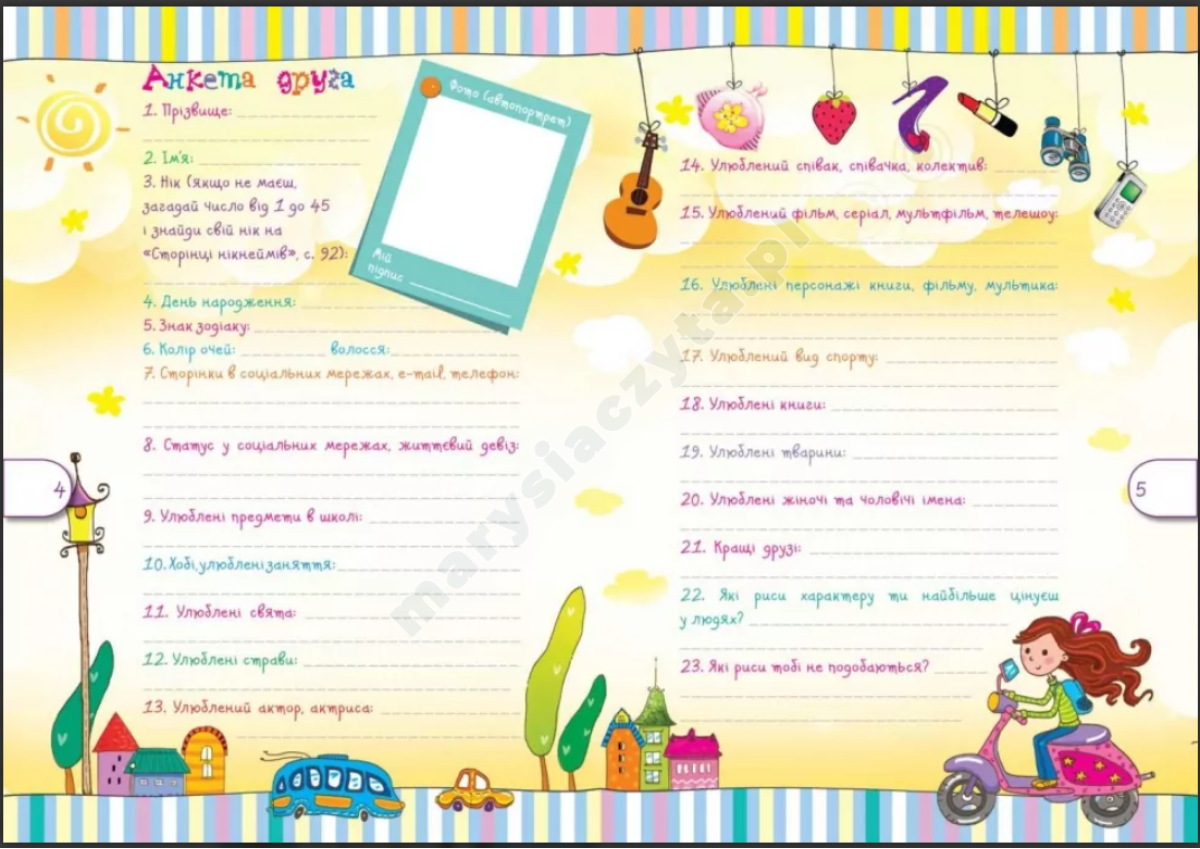 Анкета друга
1. Прізвище:
2. Ім'я:
3. Нік (Якщо не маєш,
загадай число від 1 до 45
і знайди свій нік на
«Сторінці нікнеймів», с. 92):
4. День народження:
5. Знак зодіаку:
6. Колір очей: волосся:
7. Сторінки в соціальних мережах, e-mail, телефон:
8. Статус у соціальних мережах, життєвий девіз:
9. Улюблені предмети в школі:
10. Хобі, улюблені заняття:
11. Улюблені свята:
12. Улюблені страви:
13. Улюблений актор, актриса:
Фото (автопортрет)
Мій
підпис
4
14. Улюблений співак, співачка, колектив:
15. Улюблений фільм, серіал, мультфільм, телешоу:
16. Улюблені персонажі книги, фільму, мультика:
17. Улюблений вид спорту:
18. Улюблені книги:
19. Улюблені тварини:
20. Улюблені жіночі та чоловічі імена:
21. Кращі друзі:
22. Які риси характеру ти найбільше цінуєш
у людях?
23. Які риси тобі не подобаються?
5
marysiaczyta.pl